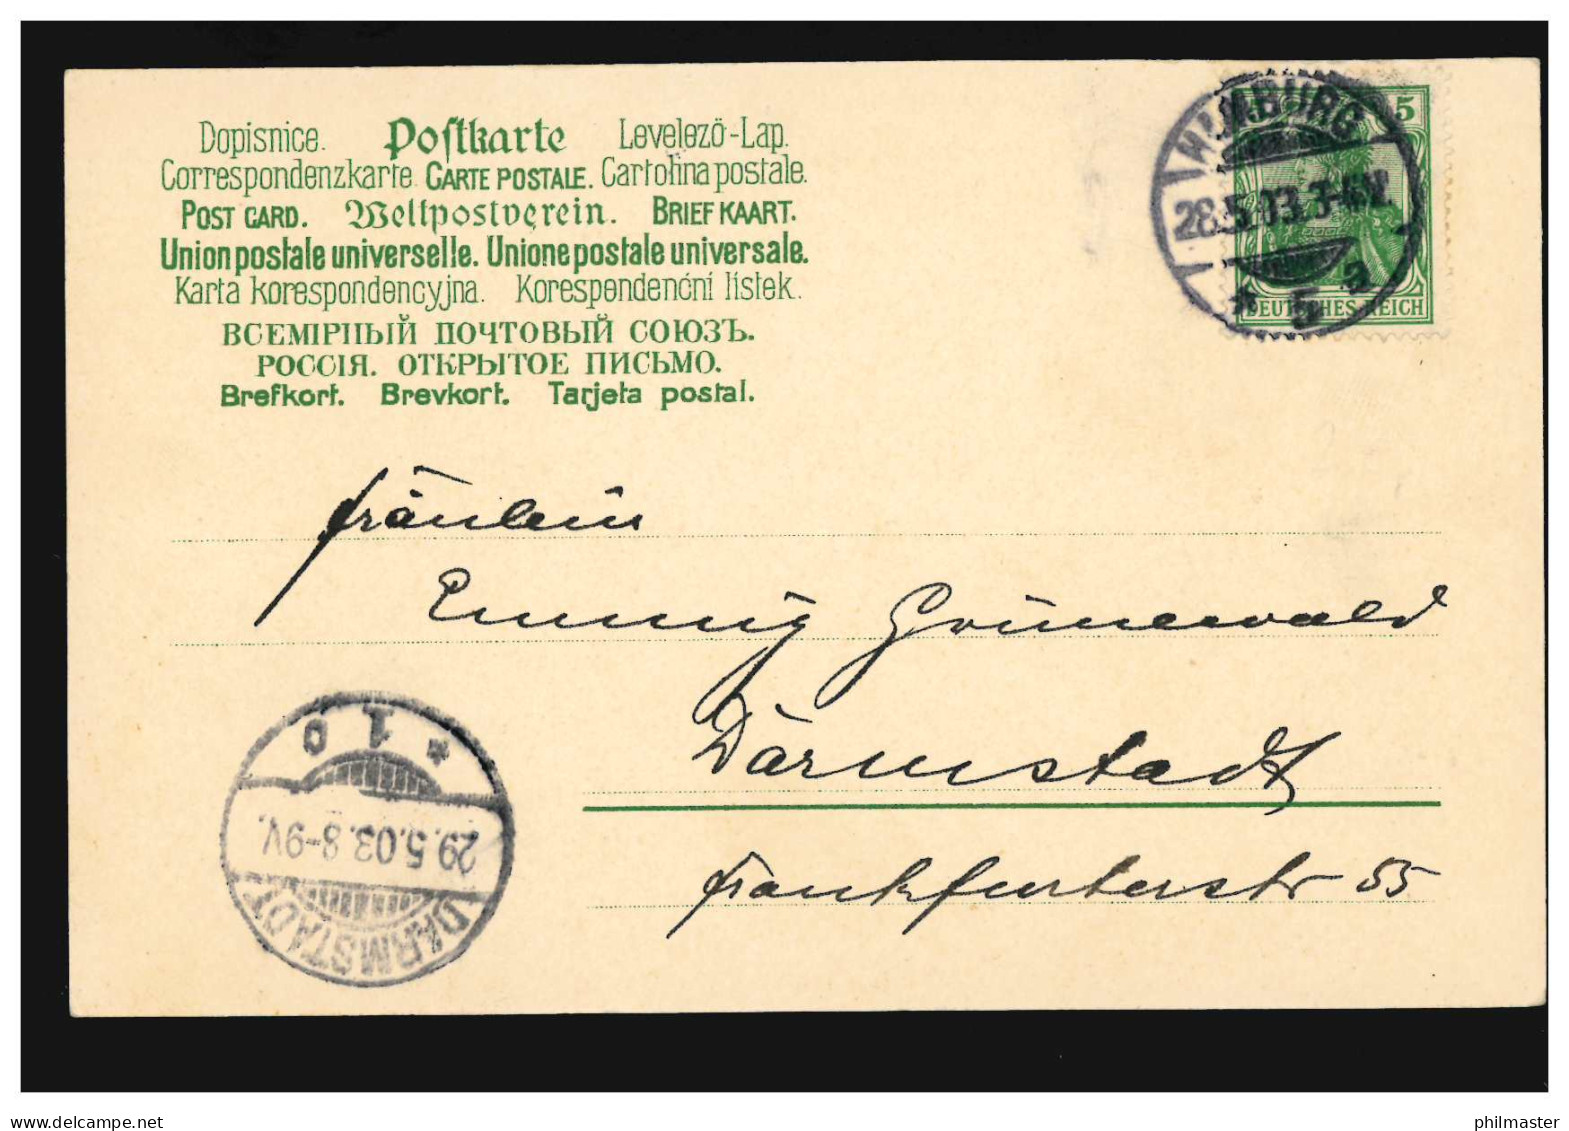 Dopisnice. Postkarte Levelező-Lap.
Correspondenzkarte. CARTE POSTALE. Cartolina postale.
POST CARD. Weltpostverein. BRIEFKAART.
Union postale universelle. Unione postale universale.
Karta korespondencyjna. Korespondenční lístek.
ВСЕМІРНЫЙ ПОЧТОВЫЙ СОЮЗЪ.
РОССІЯ. ОТКРЫТОЕ ПИСЬМО.
Brefkort. Brevkort. Tarjeta postal.
5
HAMBURG
28.5.03.3-4V.
* 5 a
DEUTSCHES REICH
Fräulein
Emmy Grünewald
Darmstadt
Frankfurterstr 55
* 1 o
29.5.03.8-9V.
DARMSTADT
www.delcampe.net
philmaster